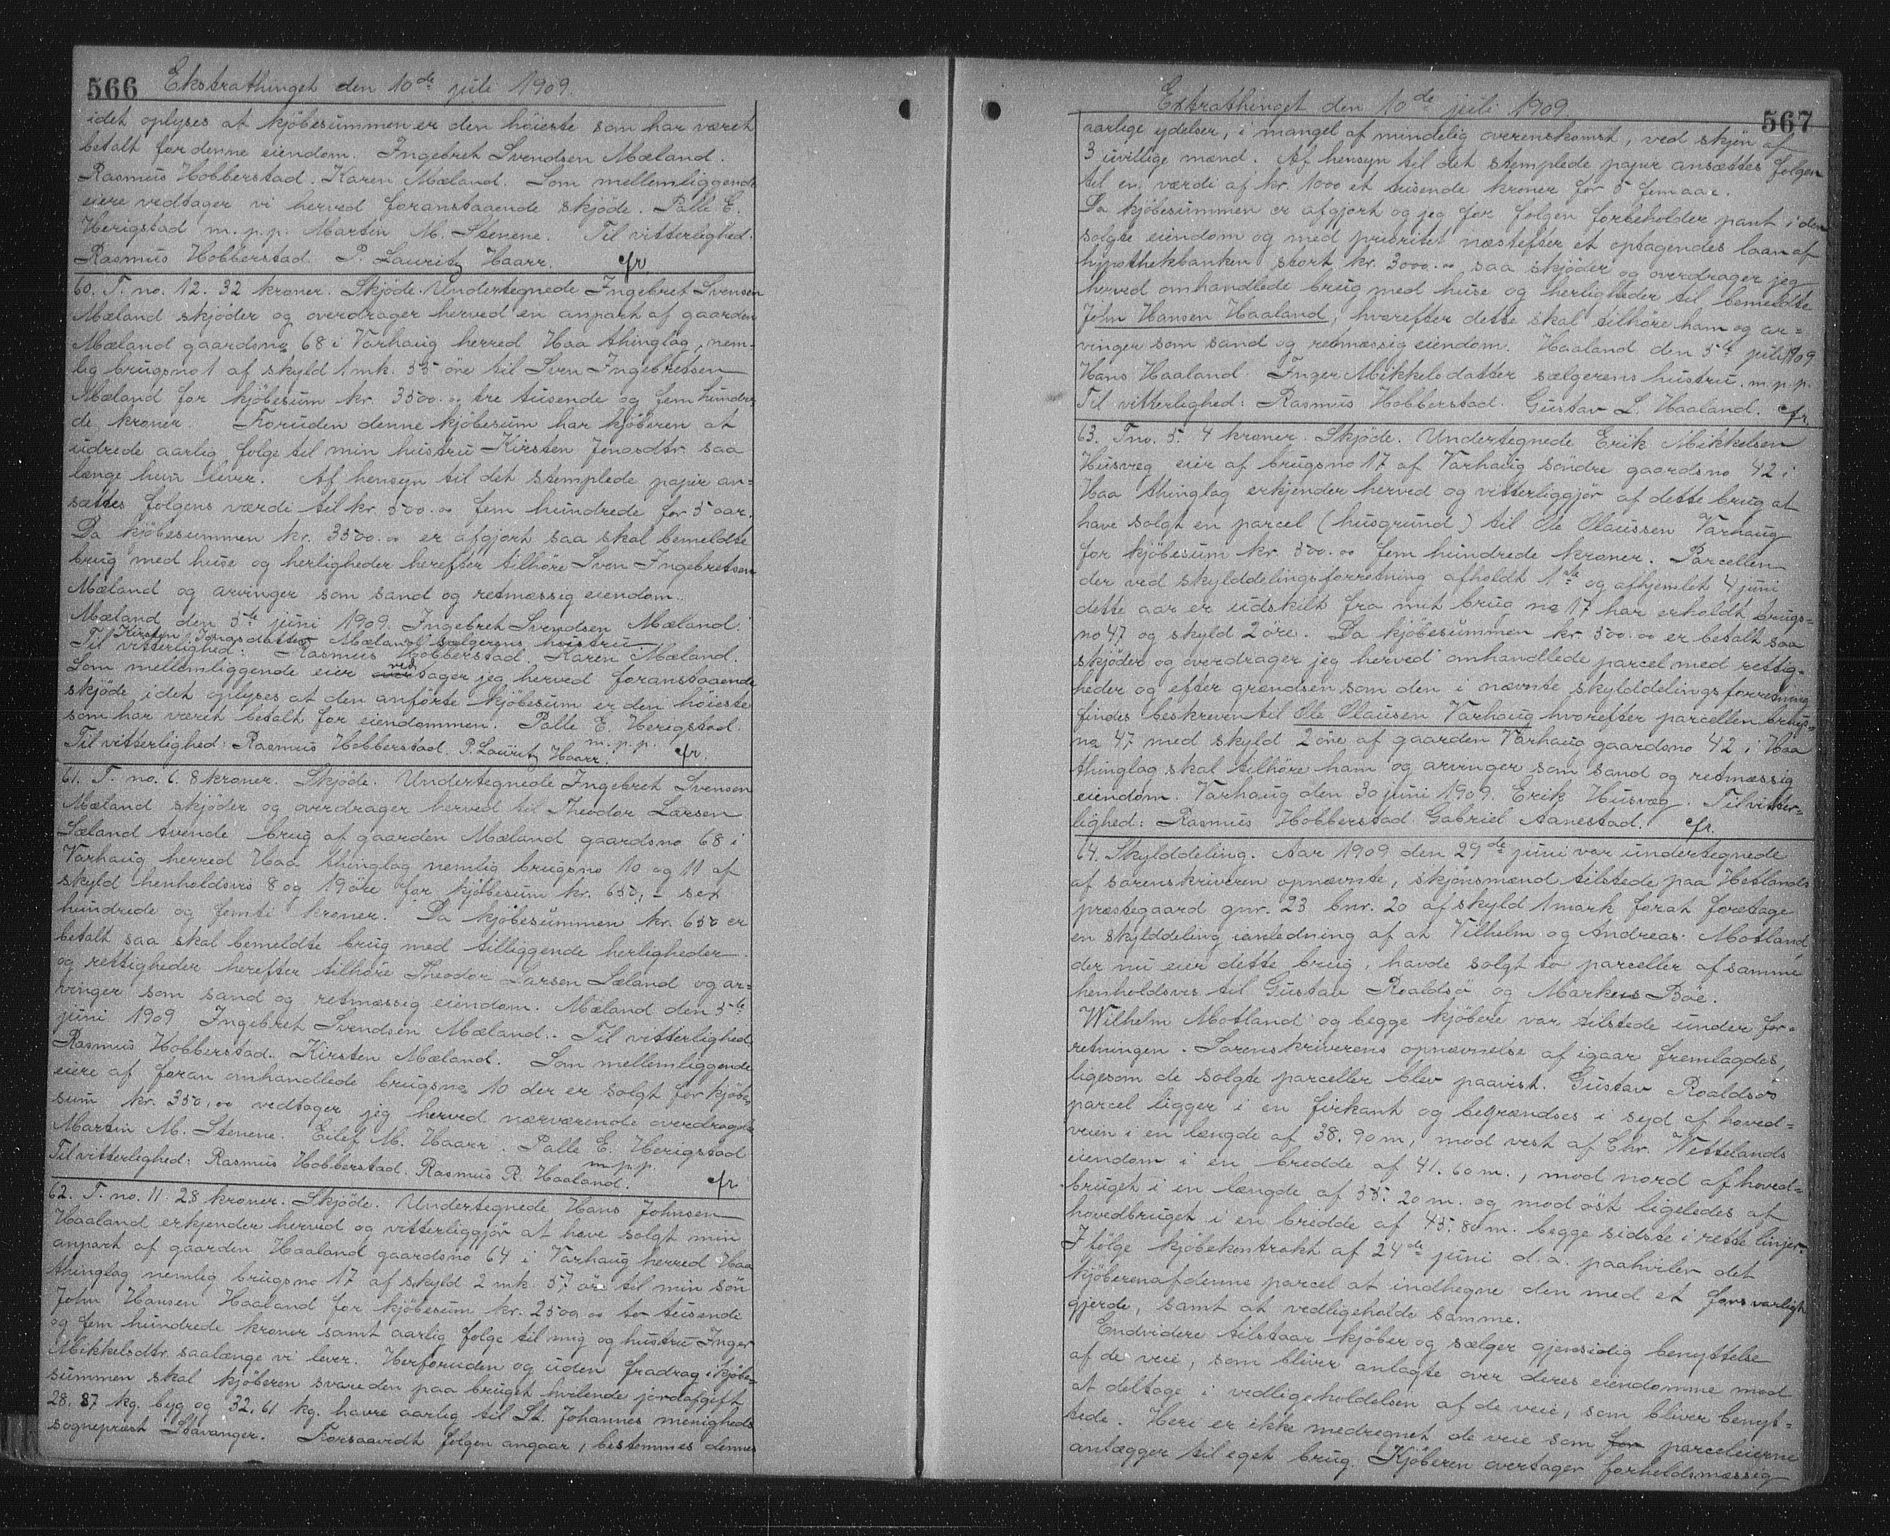 566 Ekstrathinget den 10de juli 1909.
idet oplyses at kjöbesummen er den höieste som har været
betalt for denne eiendom. Ingebret Svendsen Mæland.
Rasmus Hobberstad. Karen Mæland. Som mellemliggende
eiere vedtager vi herved foranstaaende skjöde. Palle E.
Herigstad m.p.p. Martin M. Stenene. Til vitterlighed.
Rasmus Hobberstad. P. Lauritz Haarr. cfr.
60. T. no. 12. 32 kroner. Skjöde. Undertegnede Ingebret Svensen
Mæland skjöder og overdrager herved en anpart af gaarden
Mæland gaardsno 68 i Varhaug herred Haa thinglag, nem-
lig brugsno 1 af skyld 1 mk. 55 öre til Sven Ingebretsen
Mæland for kjöbesum kr. 3500.00 tre tusende og fem hundre-
de kroner. Foruden denne kjöbesum har kjöberen at
udrede aarlig folge til min hustru Kirsten Jonasdtr saa
længe hun lever. Af hensyn til det stemplede papir an-
sættes folgens værdi til kr. 500.00 fem hundrede for 5 aar.
Da kjöbesummen kr. 3500.00 er afgjort saa skal bemeldte
brug med huse og herligheder herefter tilhöre Sven Ingebretsen
Mæland og arvinger som sand og retmæssig eiendom.
Mæland den 5te juni 1909. Ingebret Svendsen Mæland.
Kirsten Jonasdatter Mæland sælgerens hustru.
Til vitterlighed: Rasmus Hobberstad. Karen Mæland.
Som mellemliggende eier vedtager jeg herved foranstaaende
skjöde, idet oplyses at den anförte kjöbesum er den höieste
som har været betalt for eiendommen. Palle E. Herigstad.
m.p.p.
Til vitterlighed: Rasmus Hobberstad. P. Lauritz Haarr. cfr.
61. T. no. 6. 8 kroner. Skjöde. Undertegnede Ingebret Svensen
Mæland skjöder og overdrager herved til Theodor Larsen
Sæland tvende brug af gaarden Mæland gaardsno 68 i
Varhaug herred Haa thinglag nemlig brugsno 10 og 11 af
skyld henholdsvis 8 og 19 öre for kjöbesum kr. 650,- sex
hundrede og femti kroner. Da kjöbesummen kr. 650 er
betalt saa skal bemeldte brug med tilliggende herligheder
og rettigheder herefter tilhöre Theodor Larsen Sæland og ar-
vinger som sand og retmæssig eiendom. Mæland den 5te
juni 1909 Ingebret Svendsen Mæland. Til vitterlighed
Rasmus Hobberstad. Kirsten Mæland. Som mellemliggende
eiere af foran omhandlede brugsno 10 der er solgt for kjöbe-
sum kr. 350.00 vedtager jeg herved nærværende overdragelse
Martin M. Stenene. Eilef M. Haarr. Palle E. Herigstad
m.p.p.
Til vitterlighed: Rasmus Hobberstad. Rasmus R. Haaland. cfr
62. T. no. 11. 28 kroner. Skjöde. Undertegnede Hans Johnsen
Haaland erkjender herved og vitterliggjör at have solgt min
anpart af gaarden Haaland gaardsno 64 i Varhaug herred Haa
thinglag nemlig brugsno 17 af skyld 2 mk. 57 öre til min sön
John Hansen Haaland for kjöbesum kr. 2500.00 to tusende
og fem hundrede kroner samt aarlig folge til mig og hustru Inger
Mikkelsdtr. saalænge vi lever. Herforuden og uden fradrag i kjöbe-
summen skal kjöberen svare den paa bruget hvilende jordafgift
28.87 kg. byg og 32.61 kg. havre aarlig til St. Johannes menigheds
sogneprest Stavanger. Forsaavidt folgen angaar, bestemmes dennes
Extrathinget den 10de juli 1909. 567
aarlige ydelser, i mangel af mindelig overenskomst, ved skjön af
3 uvillige mænd. Af hensyn til det stemplede papir ansættes folgen
til en værdi af kr. 1000 et tusende kroner for 5 fem aar.
Da kjöbesummen er afgjort og jeg for folgen forbeholder pant i den
solgte eiendom og med prioritet næstefter et optagendes laan af
hypothekbanken stort kr. 3000.00 saa skjöder og overdrager jeg
herved omhandlede brug med huse og herligheder til bemeldte
John Hansen Haaland, hvorefter dette skal tilhöre ham og ar-
vinger som sand og retmæssig eiendom. Haaland den 5te juli 1909
Hans Haaland. Inger Mikkelsdatter sælgerens hustru. m.p.p.
Til vitterlighed: Rasmus Hobberstad. Gustav L. Haaland. cfr.
63. Tno. 5. 4 kroner. Skjöde. Undertegnede Erik Mikkelsen
Husveg eier af brugsno 17 af Varhaug söndre gaardsno 42 i
Haa thinglag erkjender herved og vitterliggjör af dette brug at
have solgt en parcel (husgrund) til Ole Olaussen Varhaug
for kjöbesum kr. 500.00 fem hundrede kroner. Parcellen
der ved skylddelingsforretning afholdt 1ste og afhjemlet 4 juni
dette aar er udskilt fra mit brug no 17 har erholdt brugs-
no 47 og skyld 2 öre. Da kjöbesummen kr. 500.00 er betalt saa
skjöder og overdrager jeg herved omhandlede parcel med rettig-
heder og efter grendsen som den i nævnte skylddelingsforretning
findes beskreven til Ole Olausen Varhaug hvorefter parcellen brugs-
no 47 med skyld 2 öre af gaarden Varhaug gaardsno 42 i Haa
thinglag skal tilhöre ham og arvinger som sand og retmæssig
eiendom. Varhaug den 30 juni 1909. Erik Husveg. Til vitter-
lighed: Rasmus Hobberstad Gabriel Aanestad. cfr.
64. Skylddeling. Aar 1909 den 29de juni var undertegnede
af sorenskriveren opnævnte, skjönsmænd tilstede paa Hetlands
præstegaard gnr. 23 bnr. 20 af skyld 1 mark forat foretage
en skylddeling i anledning af at Vilhelm og Andreas Motland
der nu eier dette brug, havde solgt to parceller af samme
henholdsvis til Gustav Roaldsö og Markus Böe.
Wilhelm Motland og begge kjöbere var tilstede under for-
retningen. Sorenskriverens opnævnelse af igaar fremlagdes,
ligesom de solgte parceller blev paavist. Gustav Roaldsös
parcel ligger i en firkant og begrændses i syd af hoved-
veien i en længde af 38.90 m, mod vest af Chr. Wettelands
eiendom i en bredde af 41.60 m., mod nord af hoved-
bruget i en længde af 35.20 m. og mod öst ligeledes af
hovedbruget i en bredde af 45.80 m. begge sidste i rette linjer.
Ifölge kjöbekontrakt af 24de juni d.a. paahviler det
kjöberen af denne parcel at indhegne den med et forsvarligt
gjerde, samt at vedligeholde samme.
Endvidere tilstaar kjöber og sælger gjensidig benyttelse
af de veie, som bliver anlagte over deres eiendomme mod
at deltage i vedligeholdelsen af de veie, som bliver benyt-
tede. Heri er ikke medregnet de veie som parceleierne
anlægger til eget brug. Kjöberen overtager forholdsmæssig